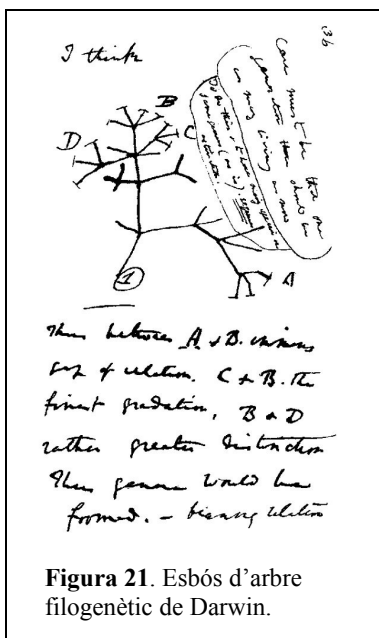 36
I think
Case must be that one
generation then should be
as many living as now
To do this & to have many species in
same genus (as is). requires
extinction.
B
C
D
A
1
Thus between A & B. immense
gap of relation. C & B. the
finest gradation, B & D
rather greater distinction
Thus genera would be
formed. — bearing relation
Figura 21. Esbós d'arbre
filogenètic de Darwin.